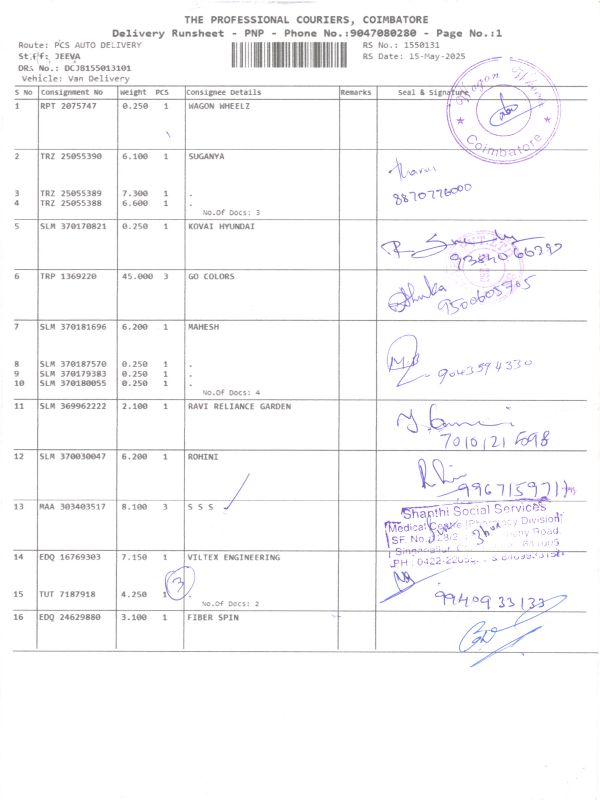 THE PROFESSIONAL COURIERS, COIMBATORE
Delivery Runsheet - PNP - Phone No.:9047080280 - Page No.:1
Route: PCS AUTO DELIVERY
RS No.: 1550131
Staff: JEEVA
RS Date: 15-May-2025
DRS No.: DCJB155013101
Vehicle: Van Delivery
S No Consignment No Weight PCS Consignee Details Remarks Seal & Signature
1 RPT 2075747 0.250 1 WAGON WHEELZ
Coimbatore
2 TRZ 25055390 6.100 1 SUGANYA
3 TRZ 25055389 7.300 1 .
4 TRZ 25055388 6.600 1 .
8870776000
No.Of Docs: 3
5 SLM 370170821 0.250 1 KOVAI HYUNDAI
6 TRP 1369220 45.000 3 GO COLORS
9500605705
7 SLM 370181696 6.200 1 MAHESH
8 SLM 370187570 0.250 1 .
9 SLM 370179383 0.250 1 .
9043594330
10 SLM 370180055 0.250 1 .
No.Of Docs: 4
11 SLM 369962222 2.100 1 RAVI RELIANCE GARDEN
12 SLM 370030047 6.200 1 ROHINI
13 MAA 303403517 8.100 3 S S S
Shanthi Social Services
Medical Centre (Pharmacy Division)
SF No.
14 EDQ 16769303 7.150 1 VILTEX ENGINEERING
3
15 TUT 7187918 4.250 1 .
No.Of Docs: 2
9940933133
16 EDQ 24629880 3.100 1 FIBER SPIN